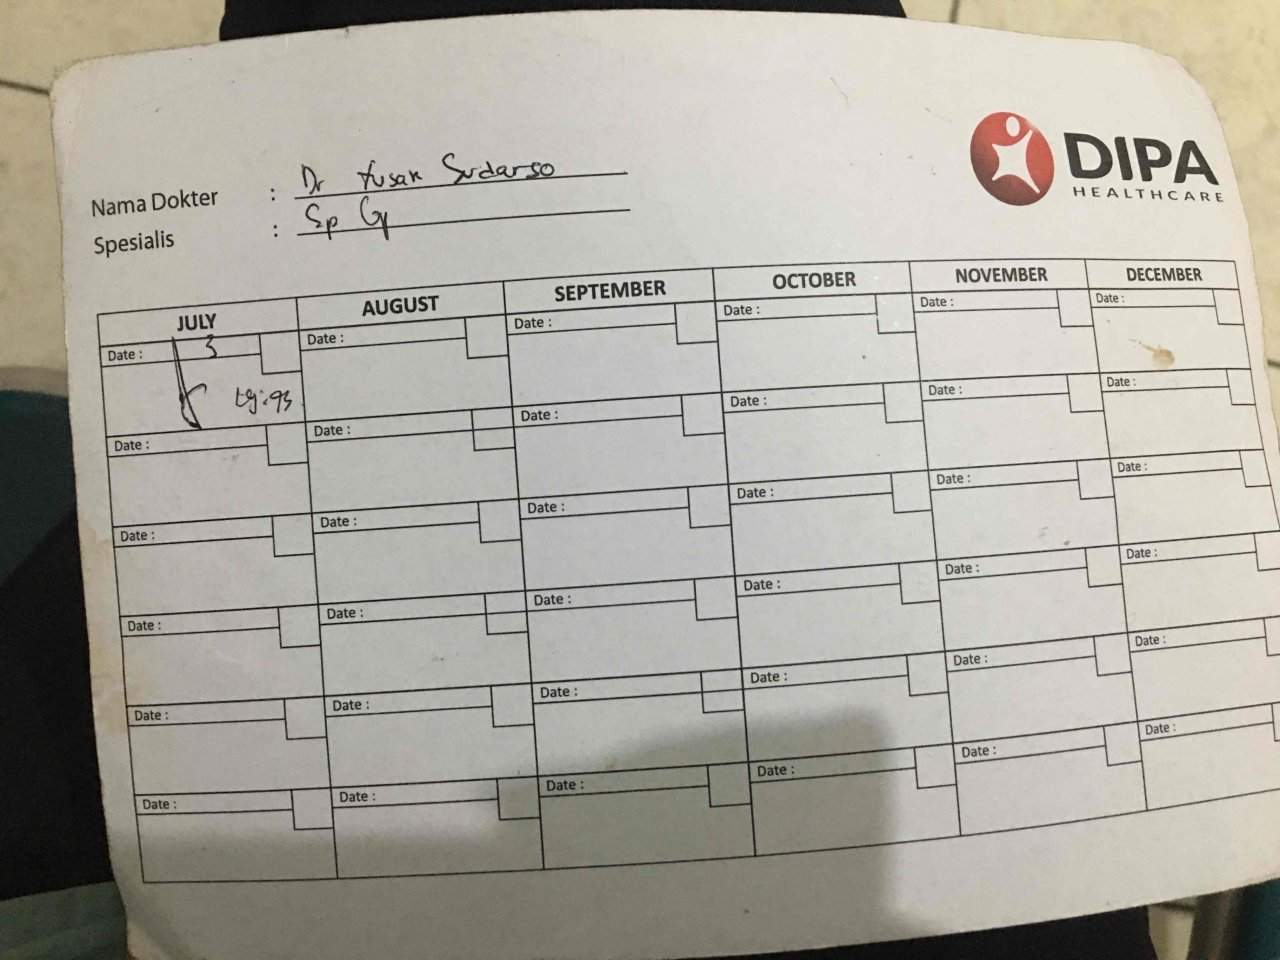 DIPA
HEALTHCARE
Nama Dokter : Dr Yusak Sudarso
Spesialis : Sp
JULY AUGUST SEPTEMBER OCTOBER NOVEMBER DECEMBER
Date : 3 Date : Date : Date : Date : Date :
Date : Date : Date : Date : Date : Date :
Date : Date : Date : Date : Date : Date :
Date : Date : Date : Date : Date : Date :
Date : Date : Date : Date : Date : Date :
Date : Date : Date : Date : Date : Date :